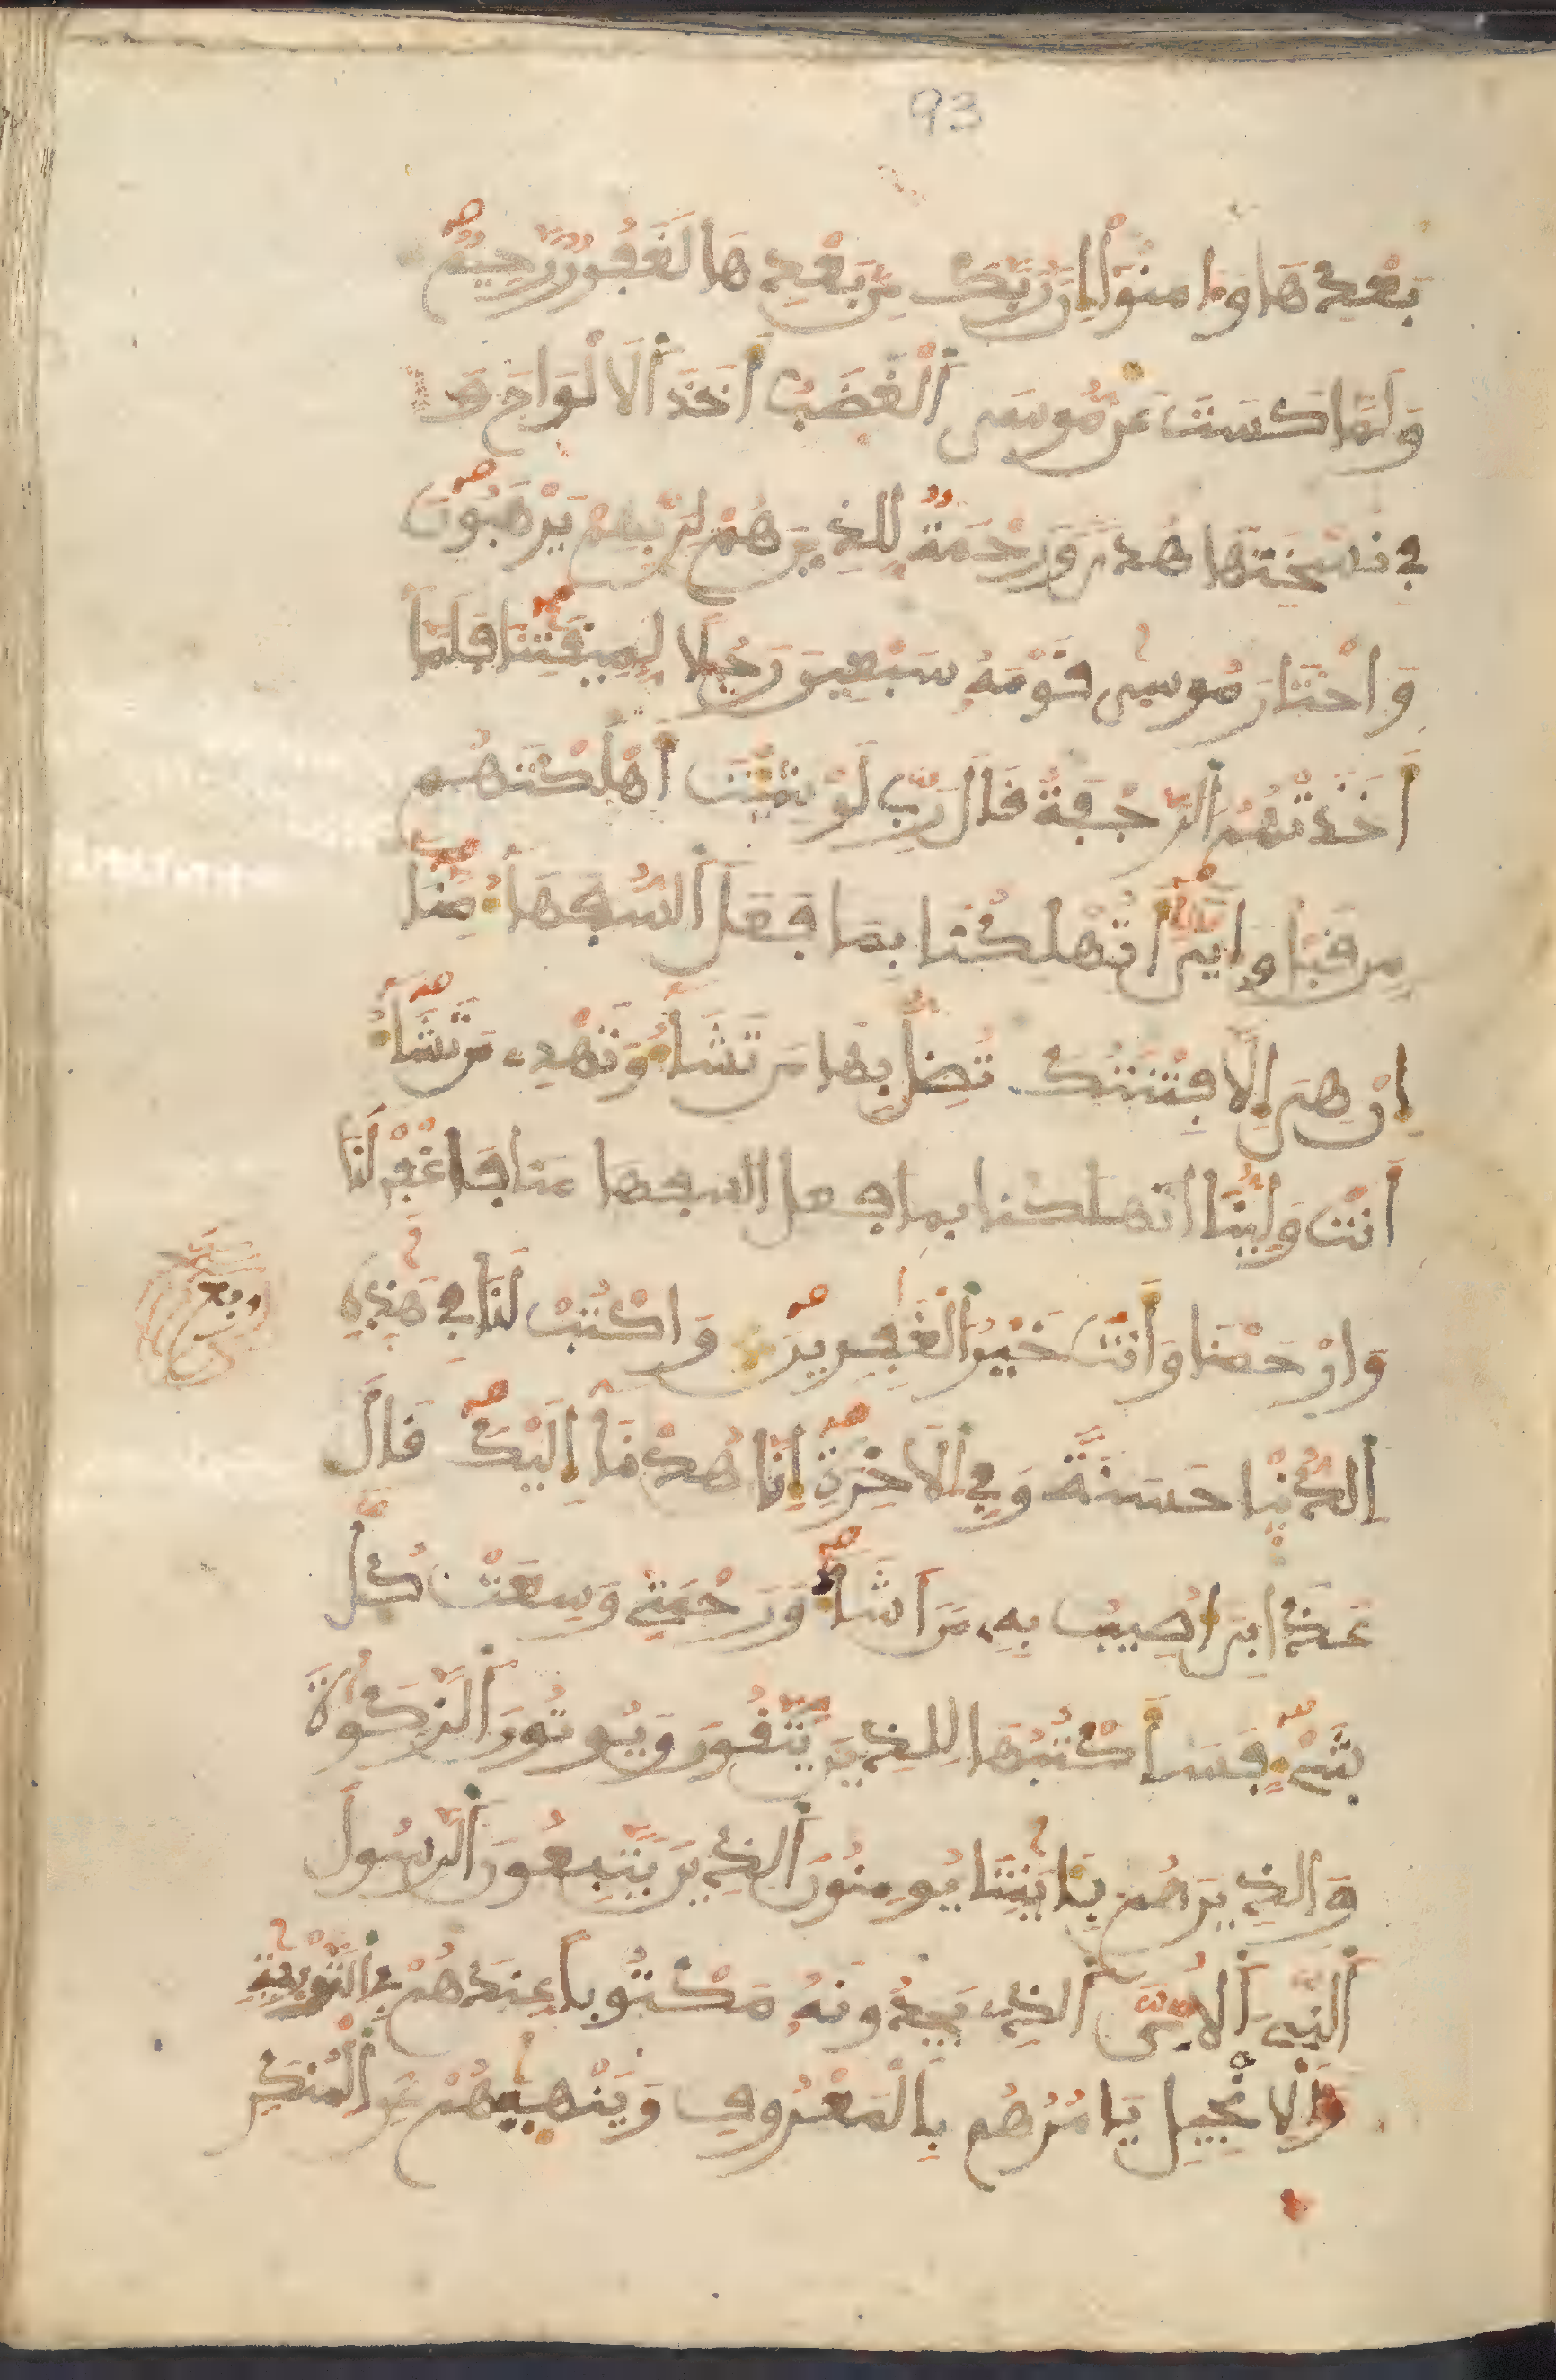 93
بَعْدِهَا وَءَامَنُوٓاْ إِنَّ رَبَّكَ مِنۢ بَعْدِهَا لَغَفُورٌ رَّحِيمٌ
وَلَمَّا سكت عَن مُّوسَى اَ۬لْغَضَبُ أَخَذَ اَ۬لَالْوَاحَ وَ
فِي نُسْخَتِهَا هُدىً وَرَحْمَةٌ لِّلذِينَ هُمْ لِرَبِّهِمْ يَرْهَبُونَ
وَاخْتَارَ مُوسٜى قَوْمَهُۥ سَبْعِينَ رَجُلًا لِّمِيقَٰتِنَا فَلَمَّآ
أَخَذَتْهُمُ اُ۬لرَّجْفَةُ قَالَ رَبِّ لَوْ شِئْتَ أَهْلَكْتَهُم
مِّن قَبْلُ وَإِيَّٰىَ أَتُهْلِكُنَا بِمَا فَعَلَ اَ۬لسُّفَهَآءُ مِنَّآ
إِنْ هِيَ إِلَّا فِتْنَتُكَ تُضِلُّ بِهَا مَن تَشَآءُ وَتَهْدِے مَن تَشَآءُ
أَنتَ وَلِيُّنَا اتهلكنا بما فعل السفها منا فَاغْفِرْ لَنَا
وَارْحَمْنَا وَأَنتَ خَيْرُ اُ۬لْغَٰفِرِينَ وَاكْتُبْ لَنَا فِي هَٰذِهِ
اِ۬لدُّنْيَا حَسَنَةً وَفِي اِ۬لَاخِرَةِ إِنَّا هُدْنَآ إِلَيْكَ قَالَ
عَذَابِيَ أُصِيبُ بِهِۦ مَنَ اَشَآءُ وَرَحْمَتِي وَسِعَتْ كُلَّ
شَيْءٍ فَسَأَكْتُبُهَا لِلذِينَ يَتَّقُونَ وَيُوتُونَ اَ۬لزَّكَوٰةَ
وَالذِينَ هُم بِـَٔايَٰتِنَا يُومِنُونَ اَ۬لذِينَ يَتَّبِعُونَ اَ۬لرَّسُولَ
اَ۬لنَّبِيَّ اَ۬لُامِّيَّ اَ۬لذِے يَجِدُونَهُۥ مَكْتُوباً عِندَهُمْ فِي اِ۬لتَّوْرٜيٰةِ
وَالِانجِيلِ يَامُرُهُم بِالْمَعْرُوفِ وَيَنْهٜيٰهُمْ عَنِ اِ۬لْمُنكَرِ